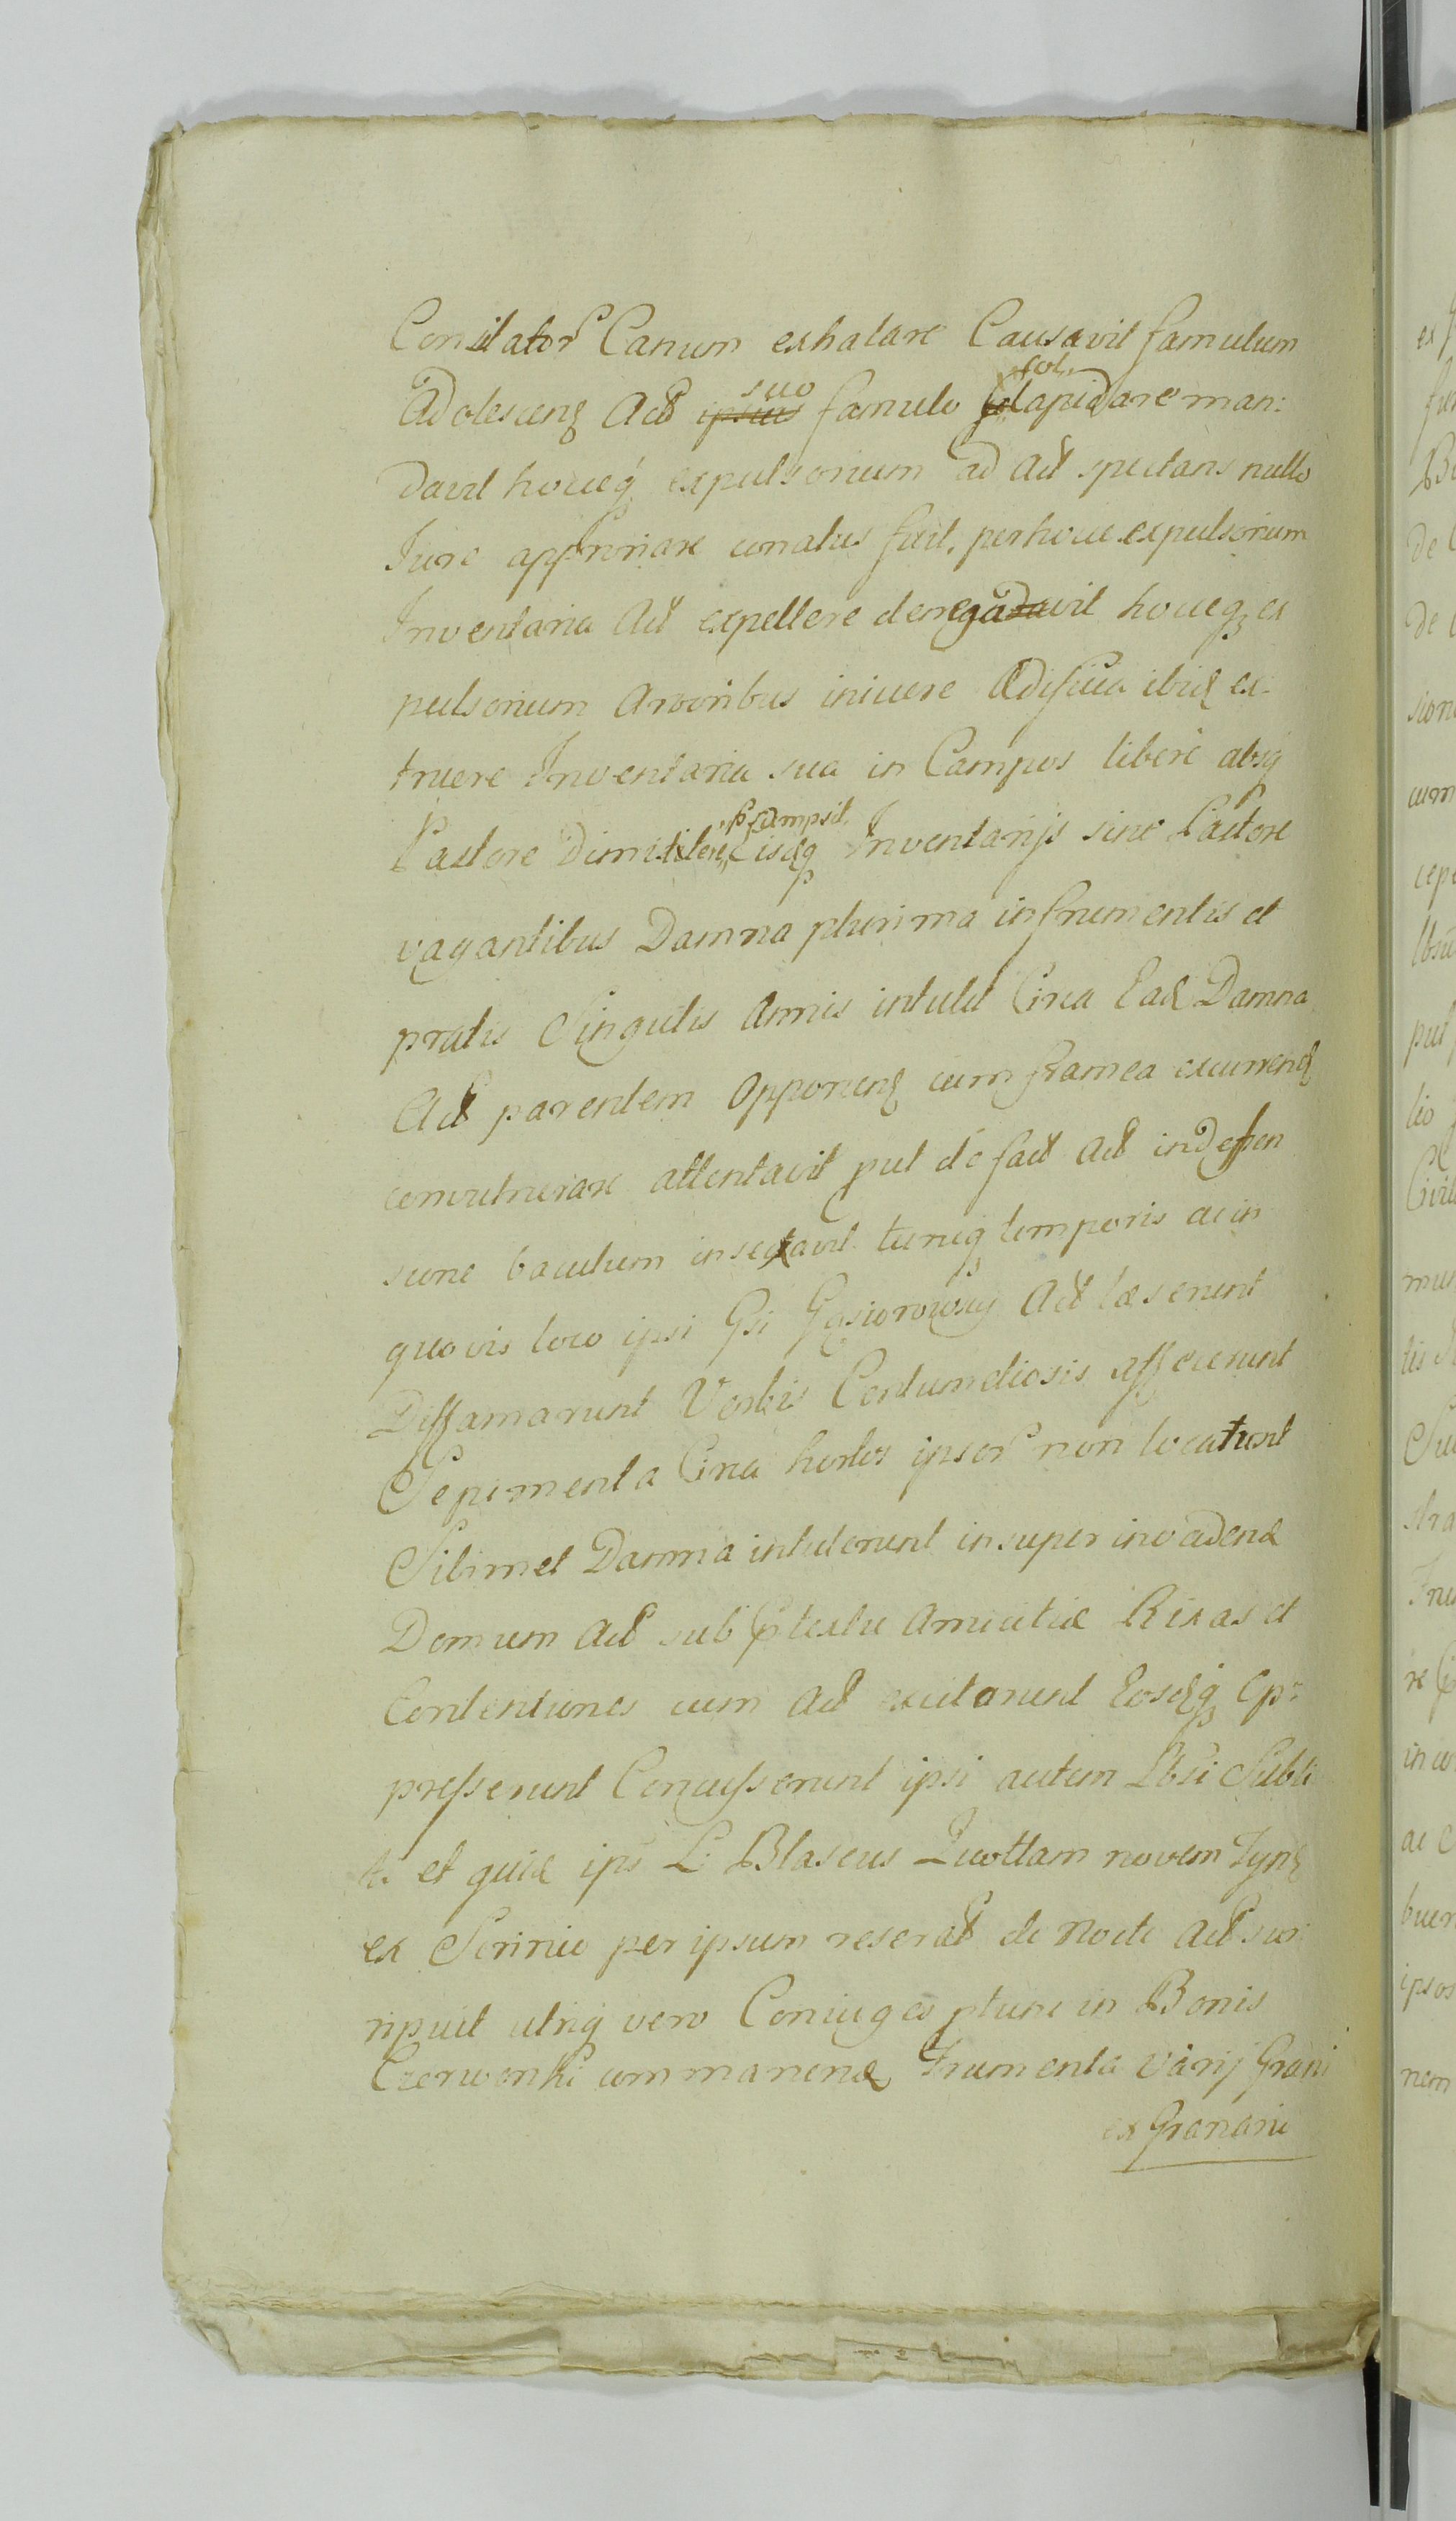 Concitator Canum exhalare Causavit famulum
Adolescen Act ipsius suo famulo col lapidare man:
davit hocceq expulsorium ad Act spectans nullo
Iure appropriare conatus fuit, per hocce expulsorium
Inventaria Act expellere denegadavit hocceq ex
pulsorium Arboribus inicere Ædificia ibid ex
truere Inventaria sua in Campos liberè absq
Pastore Dimittere, præsumpsit, iisdq Inventarijs sine Pastore
vagantibus Damna plurima in frumentis et
pratis Singulis Annis intulit Circa Ead Damna
Act parentem Opponen cum framea excurren
convulnerare attentavit put de fact Act in defen
sione baculum insectavit tuncq temporis ac in
quovis loco ipsi Gsi Gąsiorowscy Act læserunt
Diffamarunt Verbis Contumeliosis affecerunt
Sepimenta Circa hortos ipsor non locarunt
Sibimet Damna intulerunt insuper invaden
Domum Act sub ptextu Amicitiæ Rixas et
Contentiones cum Act excitarunt Eosdq Op:
presserunt Concusserunt ipsi autem Lbsi Subdi
t. et quid ips L: Blaseus Quottam novem Tyn
ex Scrinio per ipsum reserat de Nocte Act sur
ripuit utriq vero Coniuges plure in Bonis
Czerwonki commanen Frumenta varij Grani
ex Granario